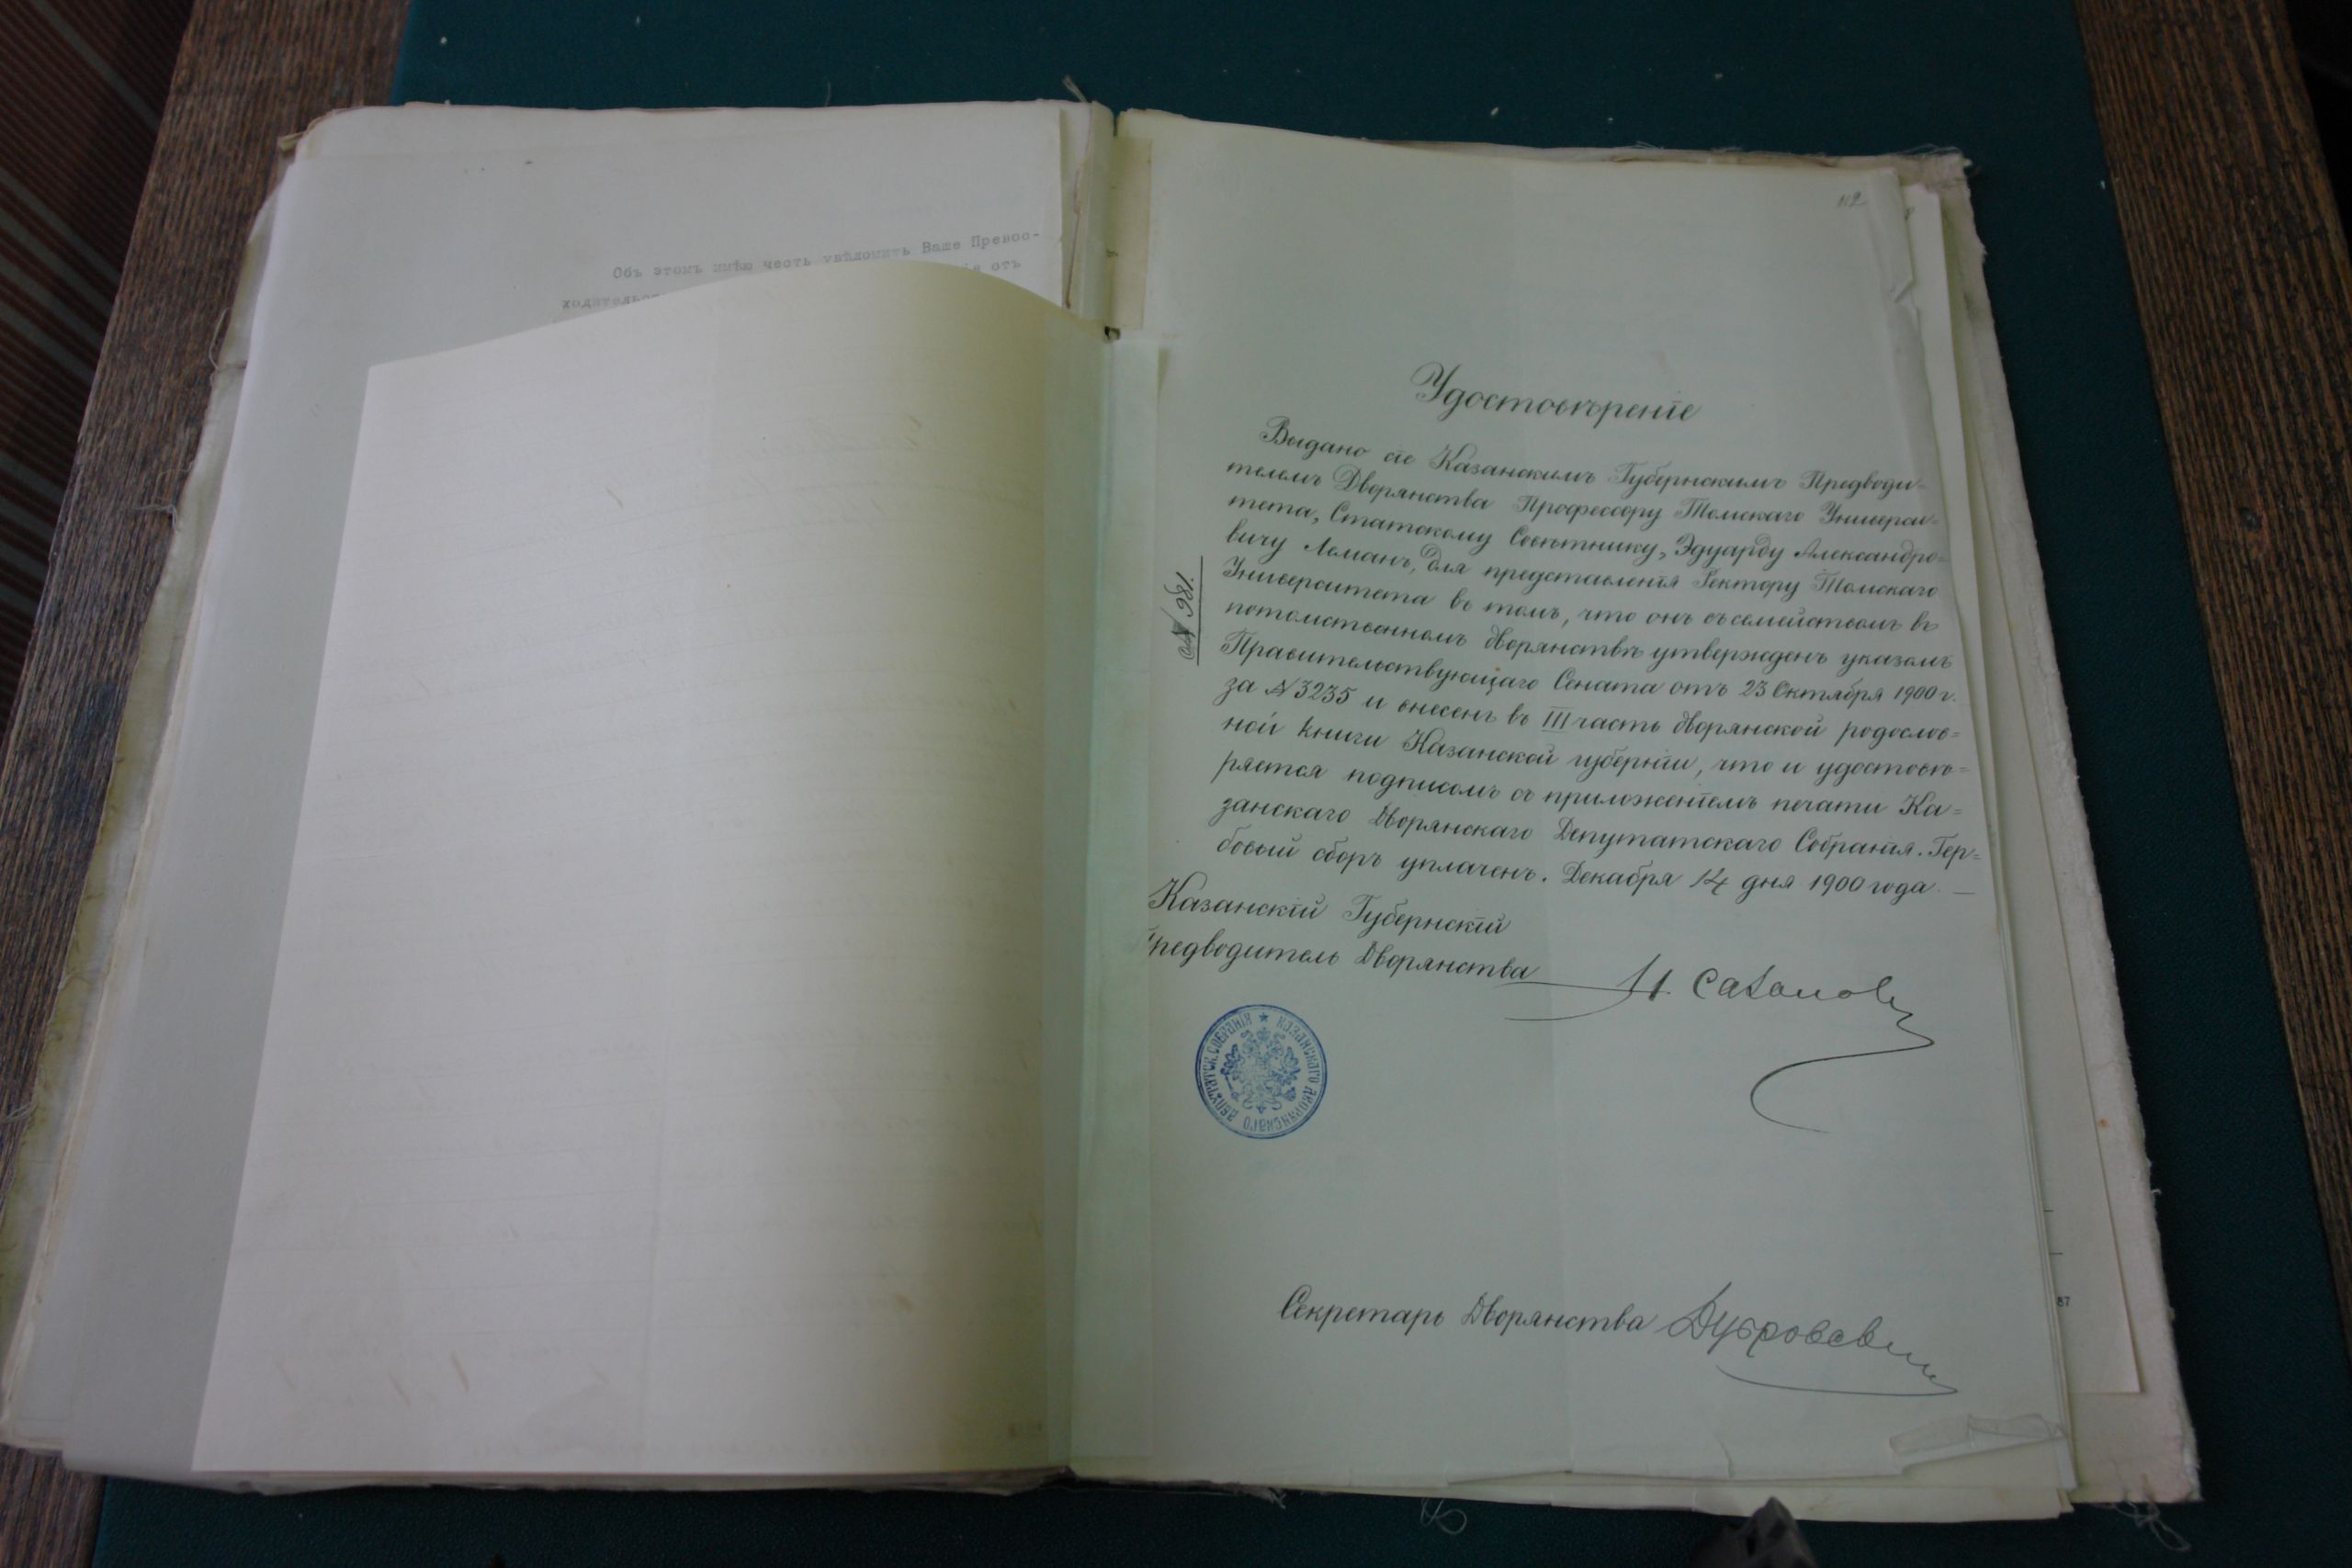 Объ этомъ имѣю честь увѣдомить Ваше Превос-
ходительс
отъ
112
Удостовѣренiе
Выдано сiе Казанскимъ Губернскимъ Предводи=
телемъ Дворянства Профессору Томскаго Универси=
тета, Статскому Совѣтнику, Эдуарду Александро=
вичу Леманъ, для представленiя Ректору Томскаго
Университета въ томъ, что онъ съ семействомъ въ
потомственномъ дворянствѣ утвержденъ указомъ
Правительствующаго Сената отъ 23 Октября 1900 г.
за №3235 и внесенъ въ III часть дворянской родослов=
ной книги Казанской губернiи, что и удостовѣ=
ряется подписомъ съ приложенiемъ печати Ка=
занскаго Дворянскаго Депутатскаго Собранiя. Гер=
бовый сборъ уплаченъ. Декабря 14 дня 1900 года. —
№ 981.
Казанскiй Губернскiй
Предводитель Дворянства
КАЗАНСКАГО ДВОРЯНСКАГО ДЕПУТАТСК. СОБРАНIЯ
Секретарь Дворянства
87